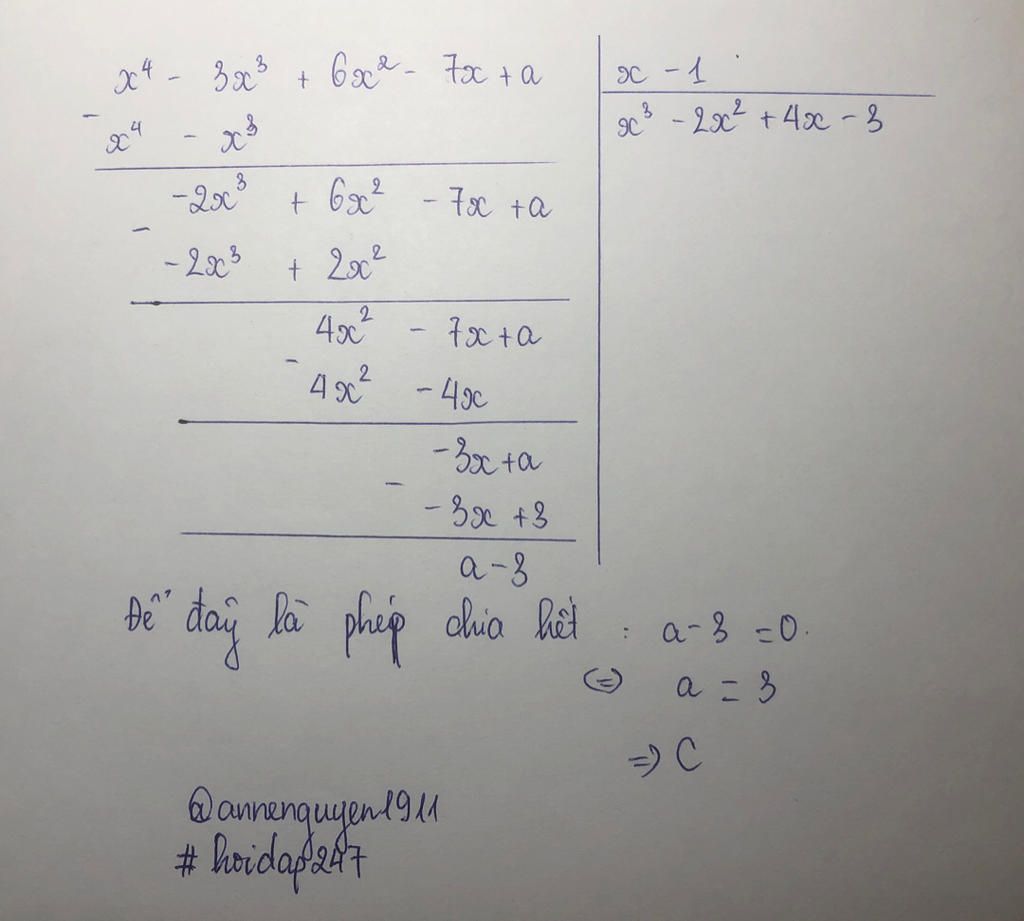 x⁴ - 3x³ + 6x² - 7x + a | x - 1
- x⁴ - x³ | x³ - 2x² + 4x - 3
-2x³ + 6x² - 7x + a
- -2x³ + 2x²
4x² - 7x + a
- 4x² - 4x
-3x + a
- -3x + 3
a - 3
Để đây là phép chia hết : a - 3 = 0.
(=) a = 3
=> C
@annenguyen1911
# hoidap247